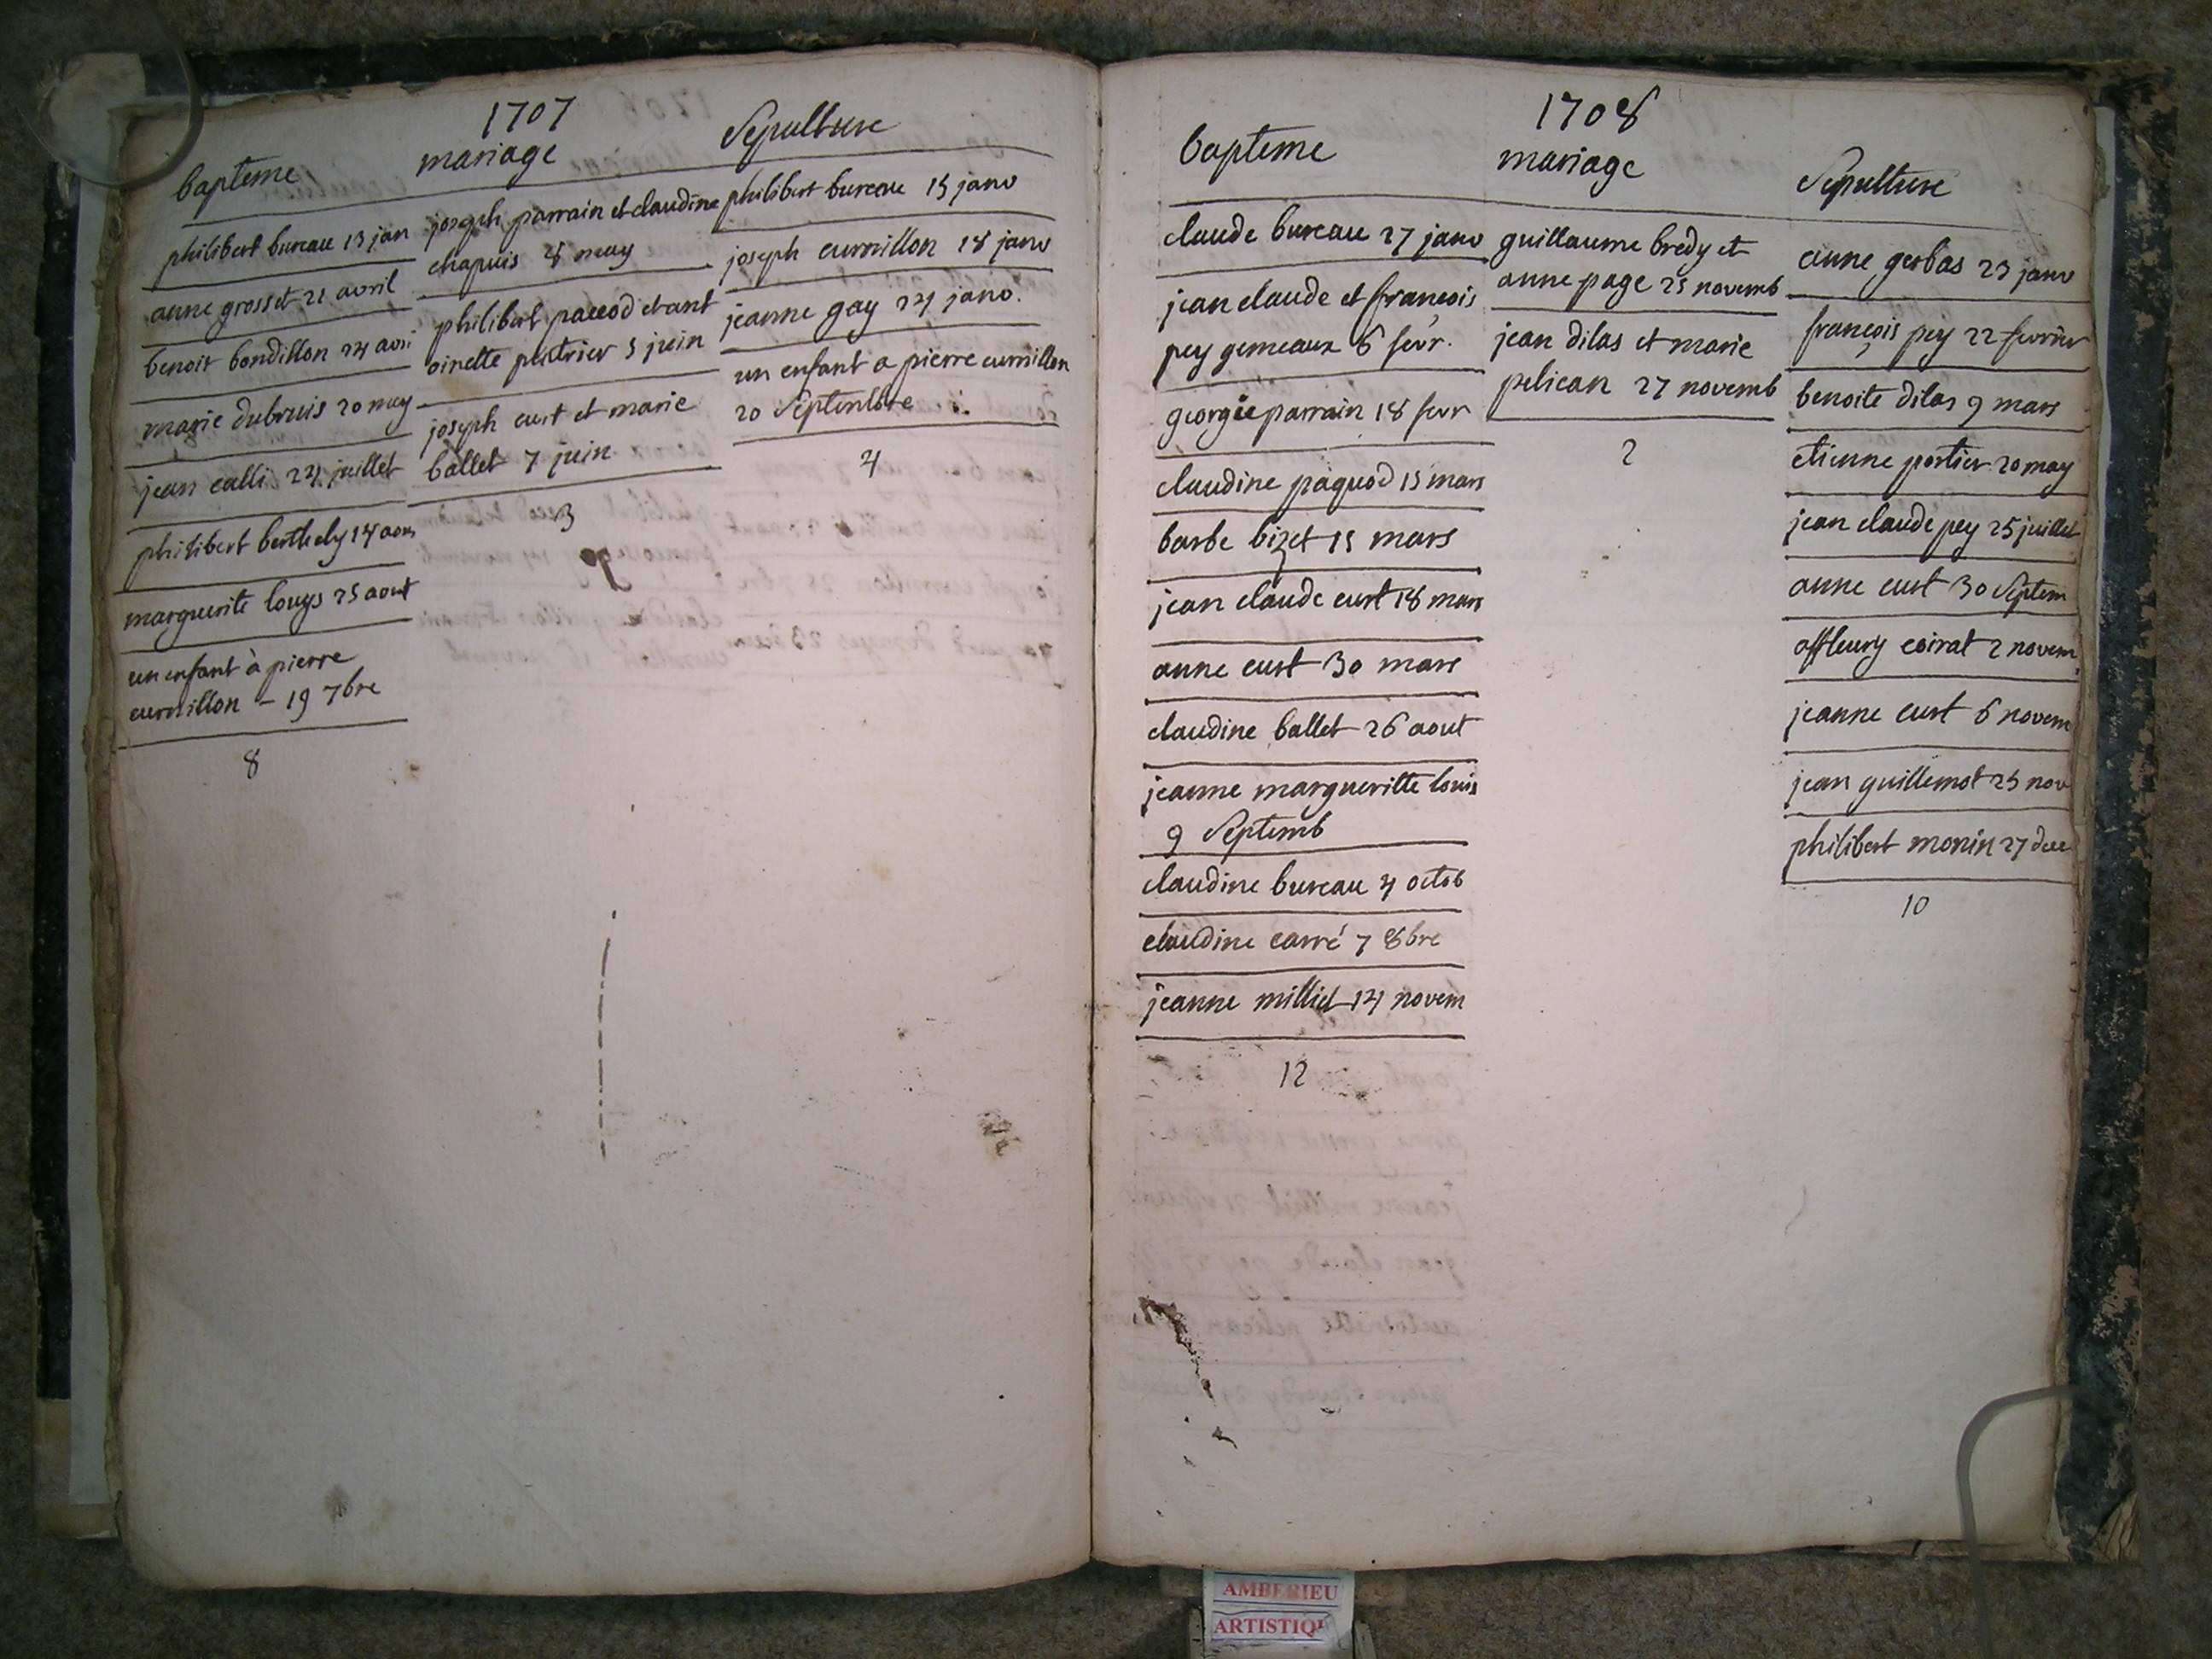 1707
bapteme
mariage
Sepulture
philibert bureau 13 jan
anne grosset 21 avril
benoit bondillon 24 avri
marie dubruis 20 may
jean calli 24 juillet
philibert berthely 14 aou
marguerite louys 25 aout
un enfant à pierre
curnillon - 19 7bre
8
joseph parrain et claudine
chapuis 8 may
philibert paccod et ant
oinette 5 juin
joseph curt et marie
ballet 7 juin
3
philibert bureau 15 janv
joseph curnillon 18 janv
jeanne gay 24 janv.
un enfant a pierre curnillon
20 Septembre
4
1708
bapteme
mariage
Sepulture
claude bureau 27 janv
jean claude et françois
pey gemeaux 6 fevr.
georgie parrain 18 fevr
claudine paquod 15 mars
barbe bizet 15 mars
jean claude curt 18 mars
anne curt 30 mars
claudine ballet 26 aout
jeanne margueritte louis
9 Septemb
claudine bureau 4 octob
claudine carré 7 8bre
jeanne milliet 14 novem
12
guillaume bredy et
anne page 25 novemb
jean dilas et marie
pelican 27 novemb
2
anne gerbas 23 janv
françois pey 22 fevrier
benoite dilas 9 mars
etienne portier 20 may
jean claude pey 25 juillet
anne curt 30 Septem
affleury coirat 2 novem
jeanne curt 6 novem
jean guillemot 25 nov
philibert monin 27 dec
10
AMBERIEU
ARTISTIQ